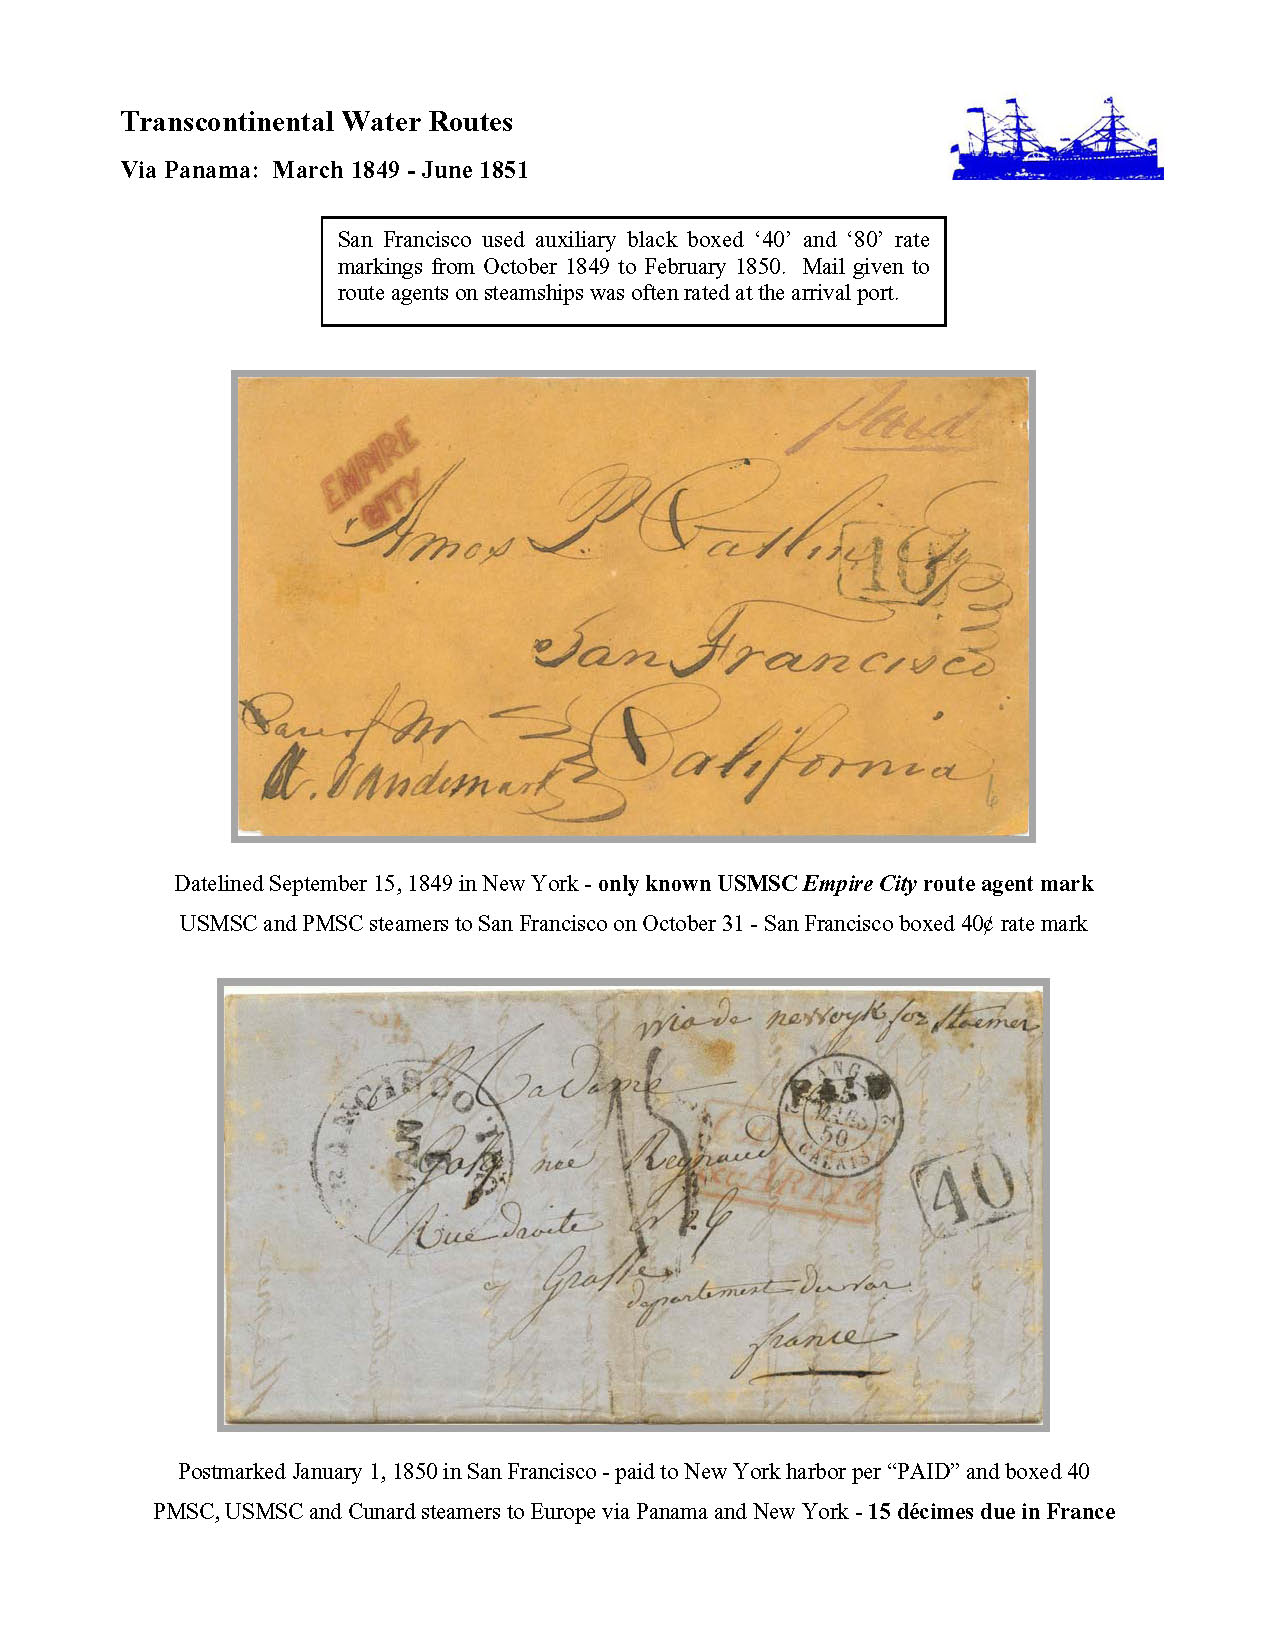 Transcontinental Water Routes
Via Panama: March 1849 - June 1851
San Francisco used auxiliary black boxed ‘40’ and ‘80’ rate
markings from October 1849 to February 1850. Mail given to
route agents on steamships was often rated at the arrival port.
paid
EMPIRE
CITY
Amos P. Catlin Esq
40
San Francisco
Care of Mr
A. Vandemark
California
Datelined September 15, 1849 in New York - only known USMSC Empire City route agent mark
USMSC and PMSC steamers to San Francisco on October 31 - San Francisco boxed 40¢ rate mark
via de newoyk for Stoemer
Madame
PAID
FRANCISCO
JAN
1
MARS
50
CALAIS
2
née Regnaud
40
Rue droite No 26
a Grasse
departement du var
france
Postmarked January 1, 1850 in San Francisco - paid to New York harbor per “PAID” and boxed 40
PMSC, USMSC and Cunard steamers to Europe via Panama and New York - 15 décimes due in France